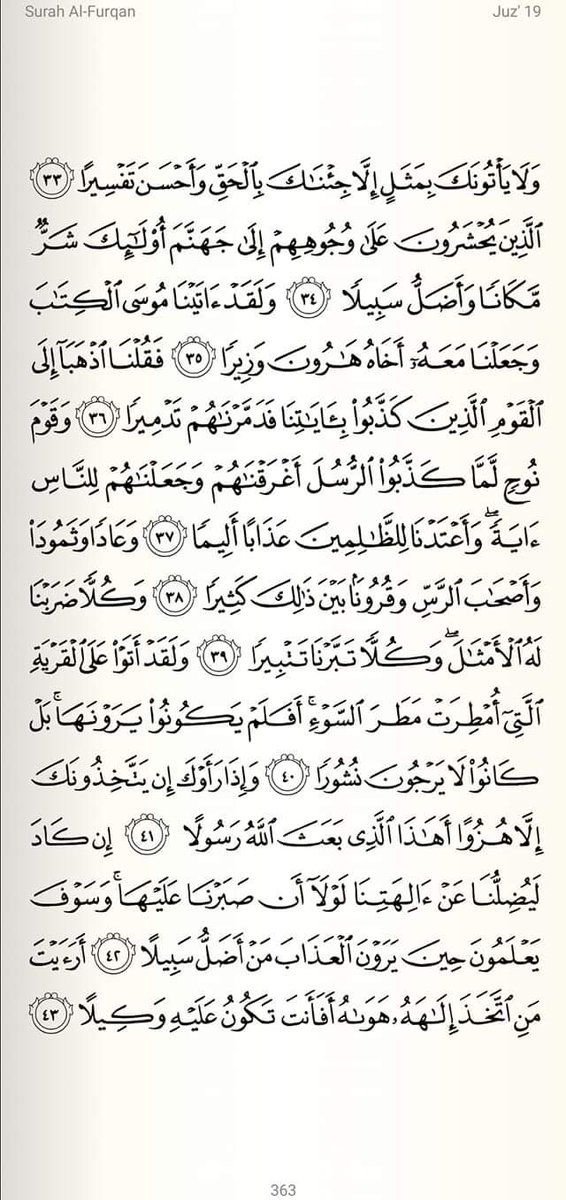 Surah Al-Furqan Juz' 19
وَلَا يَأْتُونَكَ بِمَثَلٍ إِلَّا جِئْنَٰكَ بِٱلْحَقِّ وَأَحْسَنَ تَفْسِيرًا ٣٣
ٱلَّذِينَ يُحْشَرُونَ عَلَىٰ وُجُوهِهِمْ إِلَىٰ جَهَنَّمَ أُو۟لَٰٓئِكَ شَرٌّ
مَّكَانًا وَأَضَلُّ سَبِيلًا ٣٤ وَلَقَدْ ءَاتَيْنَا مُوسَى ٱلْكِتَٰبَ
وَجَعَلْنَا مَعَهُۥٓ أَخَاهُ هَٰرُونَ وَزِيرًا ٣٥ فَقُلْنَا ٱذْهَبَآ إِلَى
ٱلْقَوْمِ ٱلَّذِينَ كَذَّبُوا۟ بِـَٔايَٰتِنَا فَدَمَّرْنَٰهُمْ تَدْمِيرًا ٣٦ وَقَوْمَ
نُوحٍ لَّمَّا كَذَّبُوا۟ ٱلرُّسُلَ أَغْرَقْنَٰهُمْ وَجَعَلْنَٰهُمْ لِلنَّاسِ
ءَايَةً ۖ وَأَعْتَدْنَا لِلظَّٰلِمِينَ عَذَابًا أَلِيمًا ٣٧ وَعَادًا وَثَمُودَا۟
وَأَصْحَٰبَ ٱلرَّسِّ وَقُرُونًۢا بَيْنَ ذَٰلِكَ كَثِيرًا ٣٨ وَكُلًّا ضَرَبْنَا
لَهُ ٱلْأَمْثَٰلَ ۖ وَكُلًّا تَبَّرْنَا تَتْبِيرًا ٣٩ وَلَقَدْ أَتَوْا۟ عَلَى ٱلْقَرْيَةِ
ٱلَّتِىٓ أُمْطِرَتْ مَطَرَ ٱلسَّوْءِ ۚ أَفَلَمْ يَكُونُوا۟ يَرَوْنَهَا ۚ بَلْ
كَانُوا۟ لَا يَرْجُونَ نُشُورًا ٤٠ وَإِذَا رَأَوْكَ إِن يَتَّخِذُونَكَ
إِلَّا هُزُوًا أَهَٰذَا ٱلَّذِى بَعَثَ ٱللَّهُ رَسُولًا ٤١ إِن كَادَ
لَيُضِلُّنَا عَنْ ءَالِهَتِنَا لَوْلَآ أَن صَبَرْنَا عَلَيْهَا ۚ وَسَوْفَ
يَعْلَمُونَ حِينَ يَرَوْنَ ٱلْعَذَابَ مَنْ أَضَلُّ سَبِيلًا ٤٢ أَرَءَيْتَ
مَنِ ٱتَّخَذَ إِلَٰهَهُۥ هَوَىٰهُ أَفَأَنتَ تَكُونُ عَلَيْهِ وَكِيلًا ٤٣
363